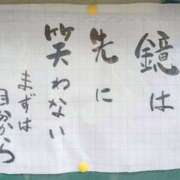 鏡は
先に
笑わない
まずは
自分から